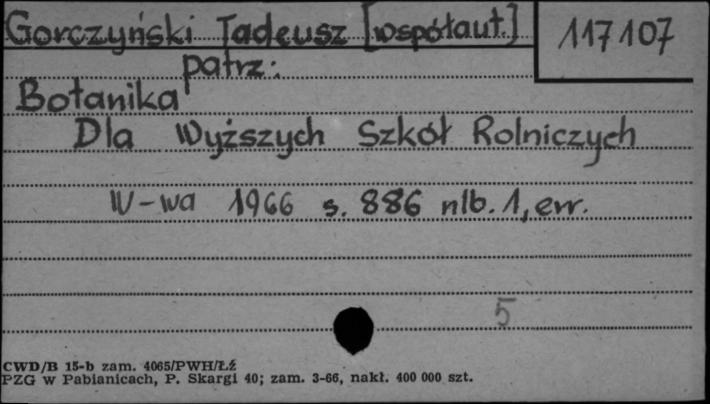 Gorczyński Tadeusz [współaut.]
117107
patrz:
Botanika
Dla Wyższych Szkół Rolniczych
W-wa 1966 s. 886 nlb. 1, err.
5
CWD/B 15-b zam. 4065/PWH/Łź
PZG w Pabianicach, P. Skargi 40; zam. 3-66, nakł. 400 000 szt.